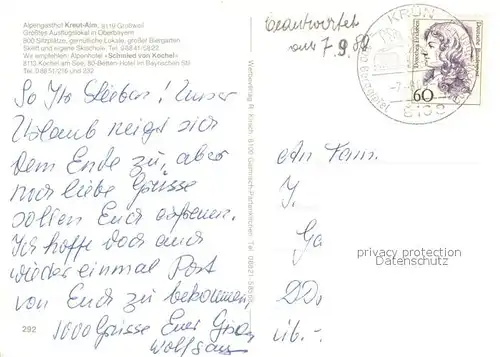 Alpengasthof Kreut-Alm, 8119 Großweil
Größtes Ausflugslokal in Oberbayern
800 Sitzplätze, gemütliche Lokale, großer Biergarten
Skilift und eigene Skischule Tel. 08841/5822
Wir empfehlen: Alpenhotel »Schmied von Kochel«
8113 Kochel am See, 80-Betten-Hotel im Bayrischen Stil
Tel. 08851/216 und 232
beantwortet
am 7.9.
KRÜN
8108
60
Deutsche Bundespost
So Ihr Lieben! Unser
Urlaub neigt sich
dem Ende zu, aber
noch liebe Grüsse
sollen Euch erfreuen.
Ich hoffe doch auch
wieder einmal Post
von Euch zu bekommen,
1000 Grüsse Euer
Wolfgang
292
An Fam.
J.
Ga
DD,
Lib. -
privacy protection
Datenschutz